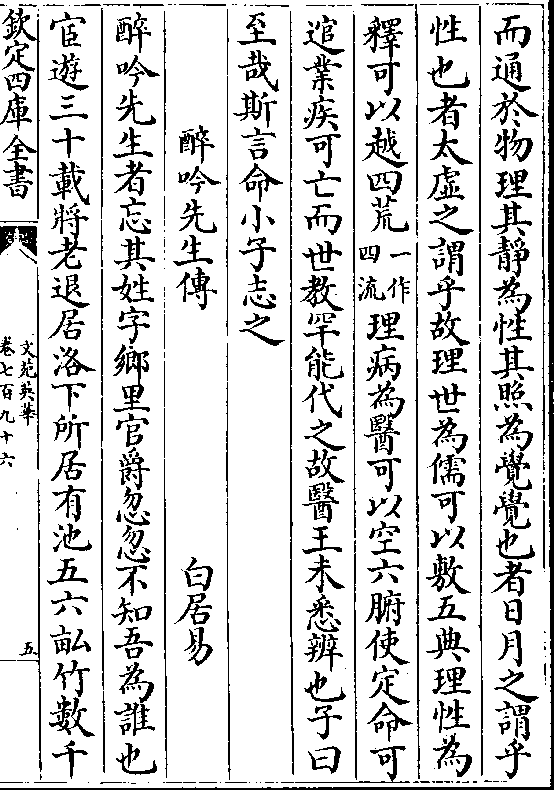 而通於物理其靜為性其照為覺覺也者日月之謂乎
性也者太虛之謂乎故理世為儒可以敷五典理性為
釋可以越四荒一作四流理病為醫可以空六腑使定命可
逭業疾可亡而世教罕能代之故醫王未悉辨也子曰
至哉斯言命小子志之
醉吟先生傳 白居易
醉吟先生者忘其姓字鄉里官爵忽忽不知吾為誰也
宦遊三十載將老退居洛下所居有池五六畝竹數千
欽定四庫全書
文苑英華
卷七百九十六
五